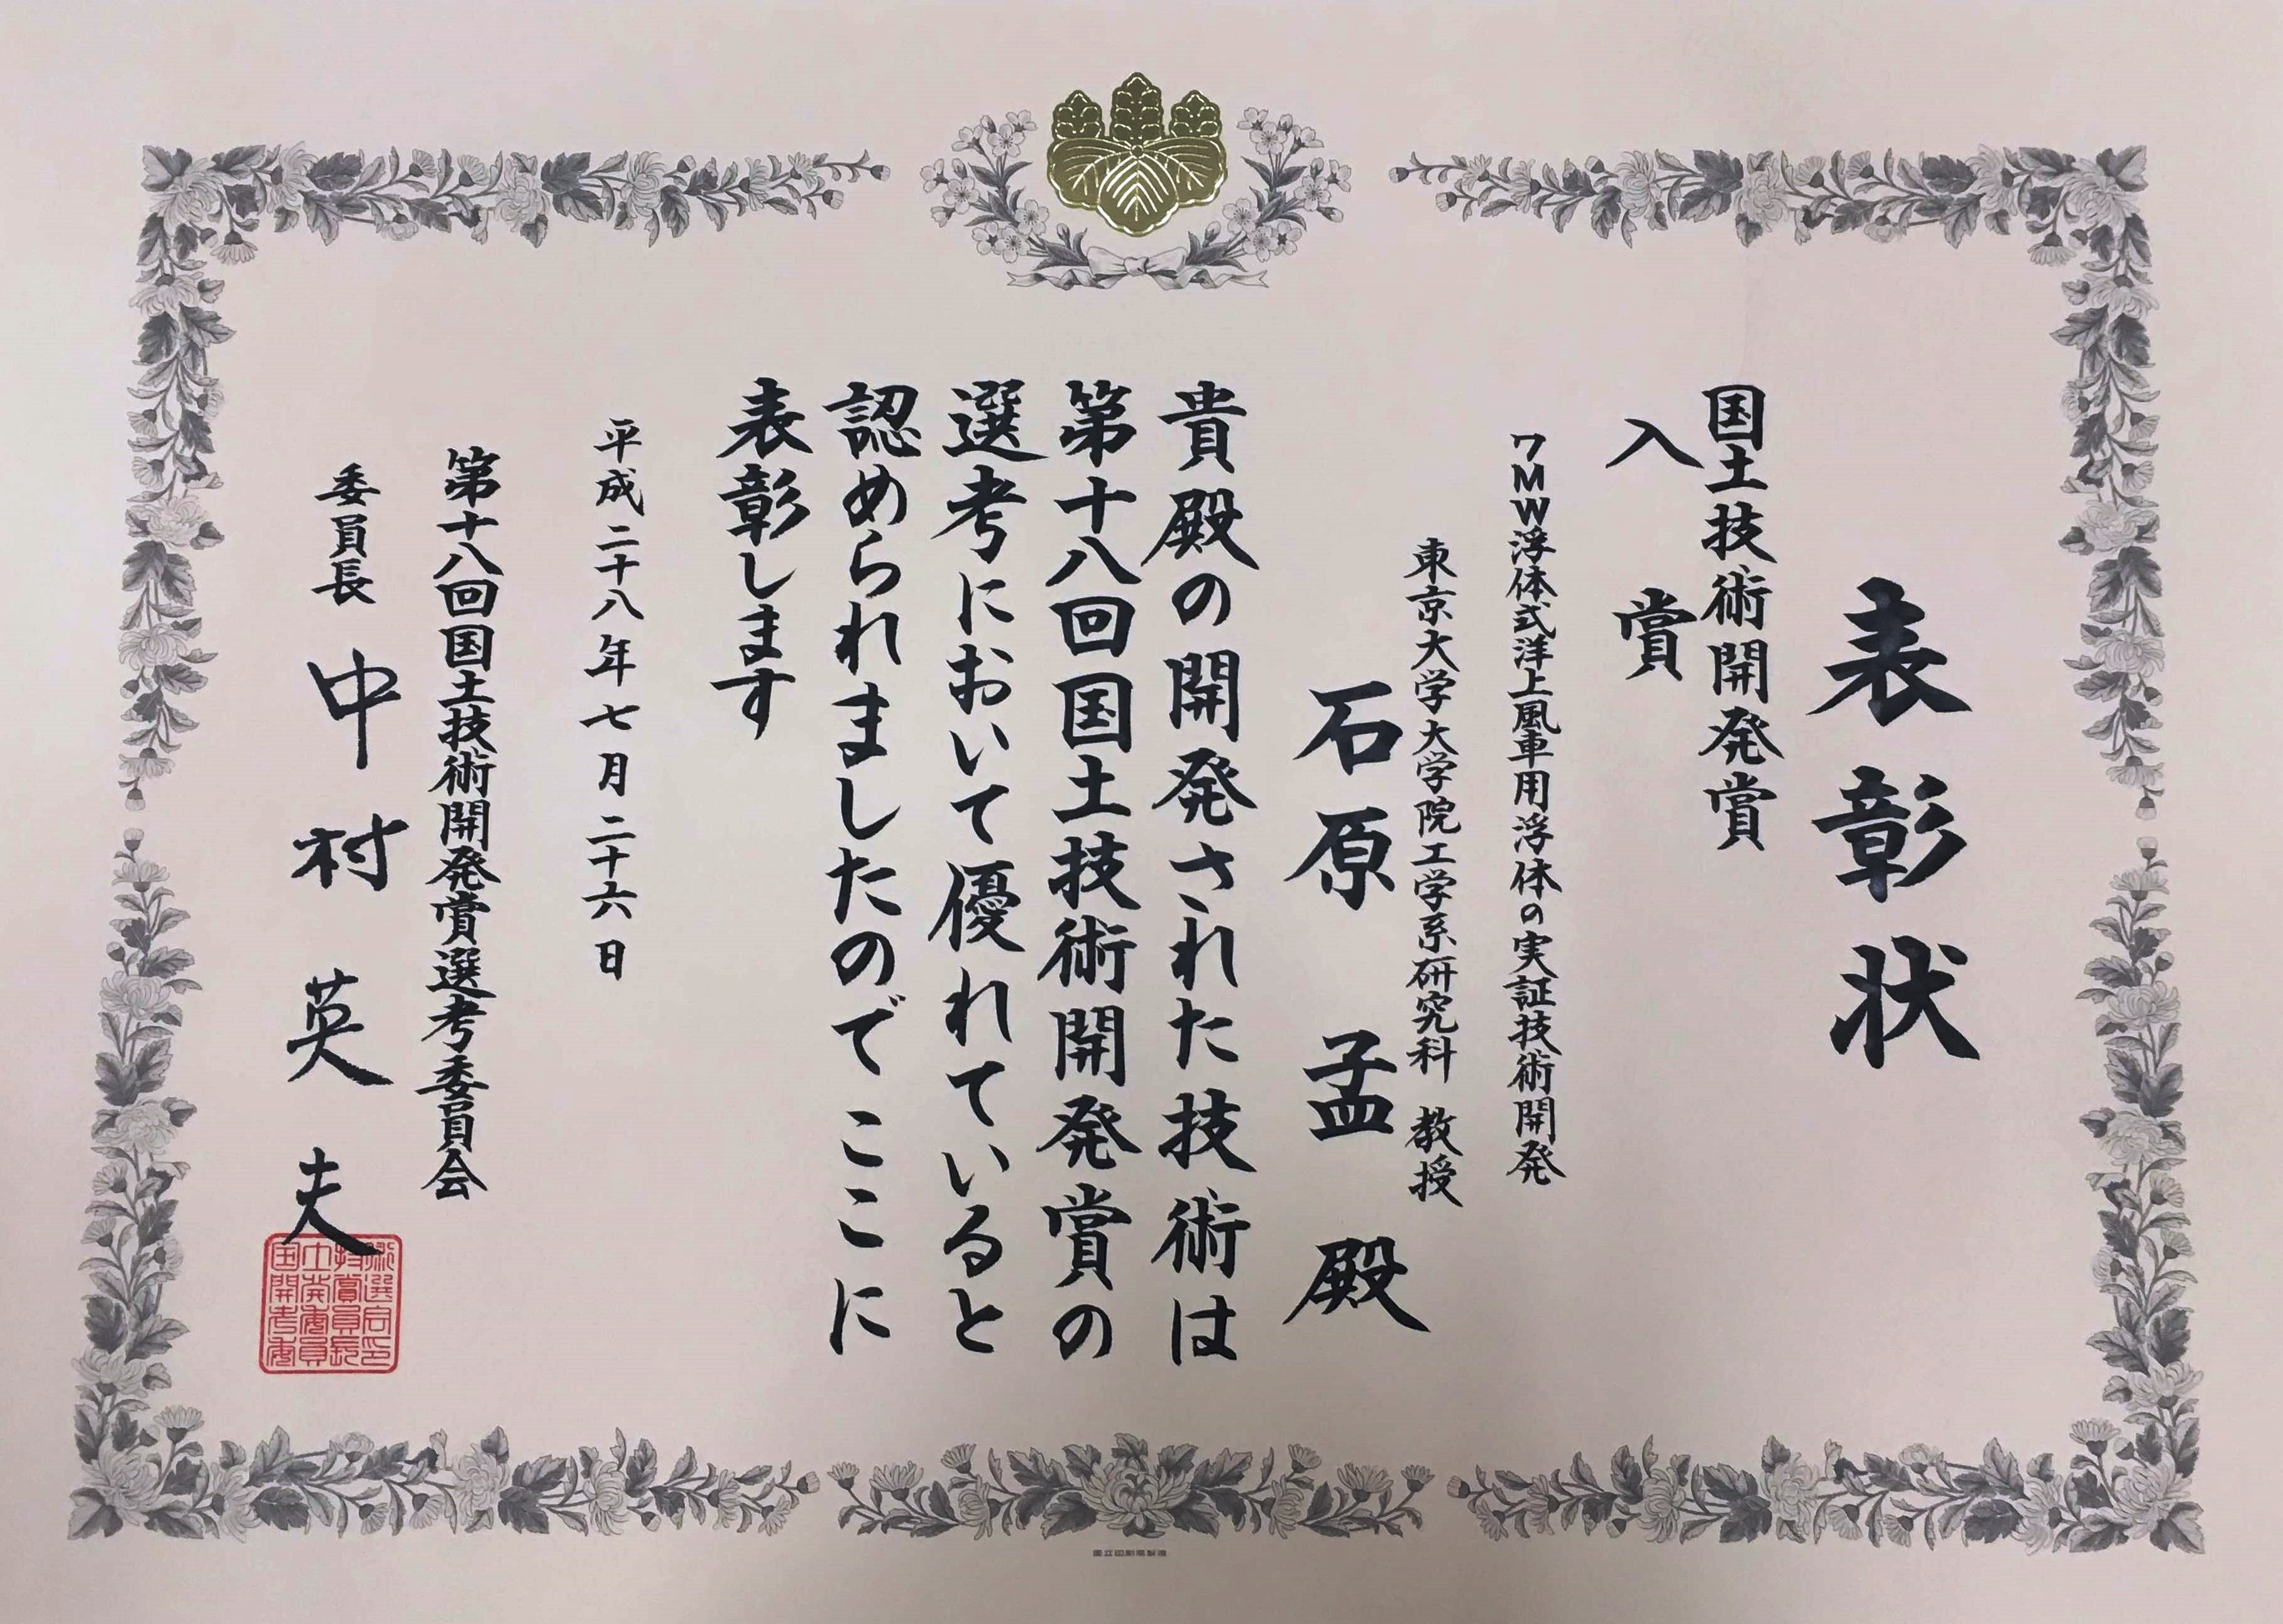 表彰状
国土技術開発賞
入賞
7MW浮体式洋上風車用浮体の実証技術開発
東京大学大学院工学系研究科 教授
石原 孟 殿
貴殿の開発された技術は
第十八回国土技術開発賞の
選考において優れていると
認められましたのでここに
表彰します
平成二十八年七月二十六日
第十八回国土技術開発賞選考委員会
委員長 中村英夫
国立印刷局製造